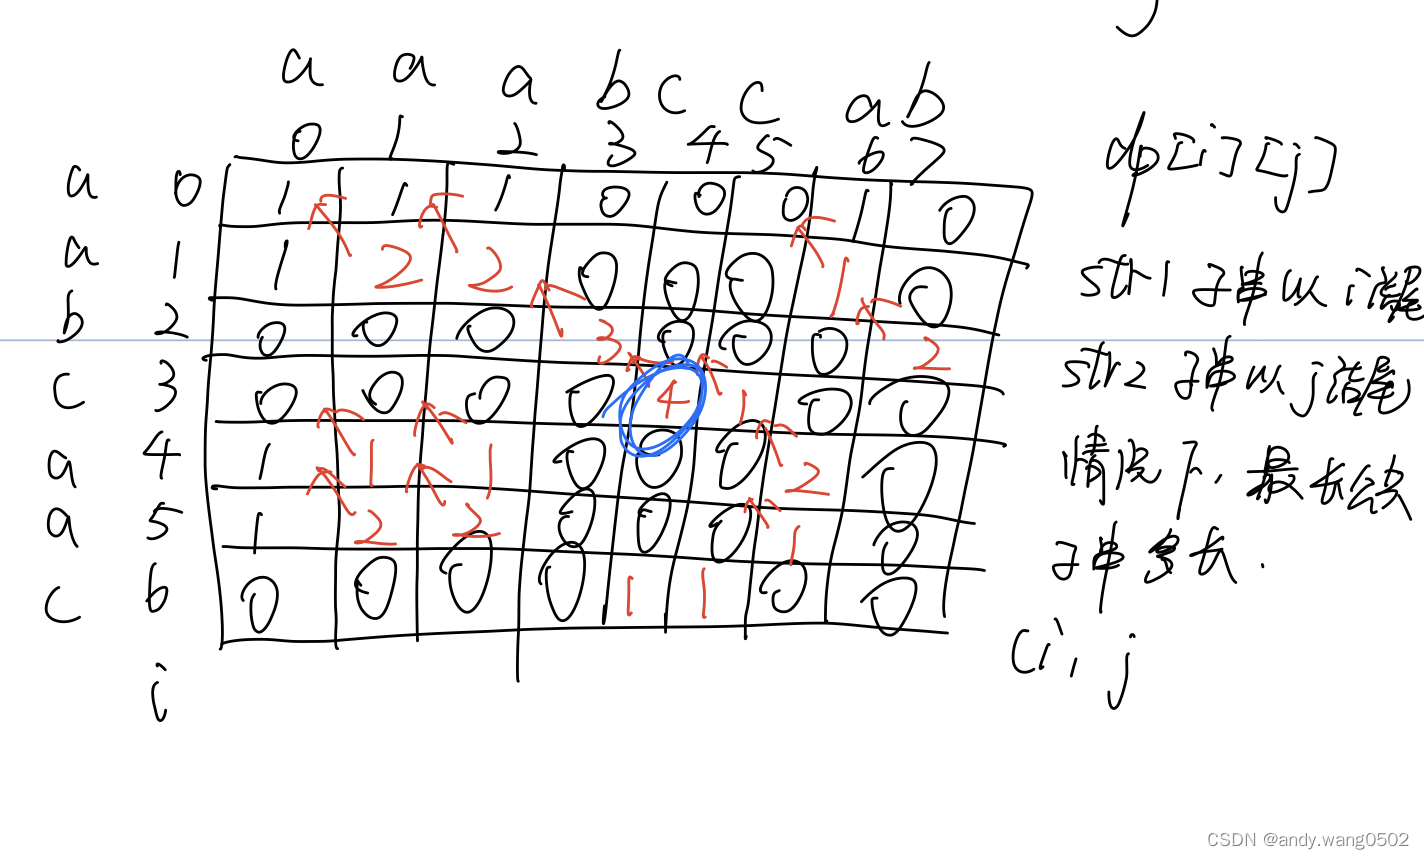 j
a a a b c c a b
0 1 2 3 4 5 6 7
a 0 1 1 1 0 0 0 1 0
a 1 1 2 2 0 0 0 1 0
b 2 0 0 0 3 0 0 0 2
c 3 0 0 0 0 4 1 0 0
a 4 1 1 1 0 0 0 2 0
a 5 1 2 2 0 0 0 1 0
c 6 0 0 0 0 1 1 0 0
i
dp[i][j]
str1子串以i结尾
str2子串以j结尾
情况下,最长公共
子串多长.
(i, j
CSDN @andy.wang0502